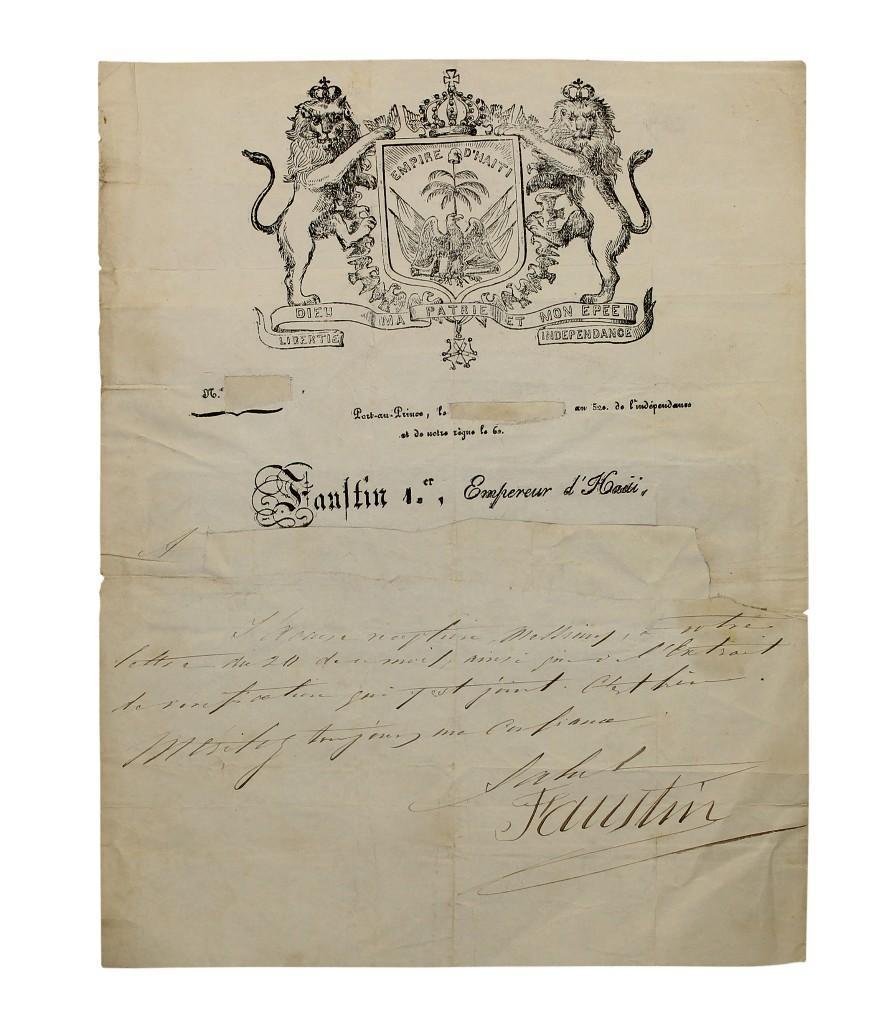 EMPIRE D'HAITI
DIEU MA PATRIE ET MON EPEE
LIBERTIE INDEPENDANCE
N.º
Port-au-Prince, le , an 52e. de l'indépendance
et de notre règne le 6e.
Faustin 1.er, Empereur d'Haïti,
A
J'accuse réception, Messieurs, à votre
lettre du 20 de ce mois, ainsi que de l'Extrait
de vérification qui y est joint. C'est bien.
Méritez toujours ma confiance.
Salut
Faustin